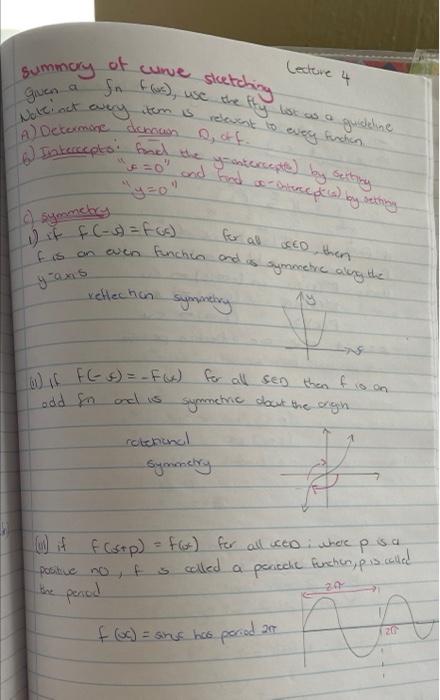 Lecture 4
Summary of curve sketching
Given a fn f(x), use the ffg list as a guideline
Note: not every item is relevant to every function.
A) Determine domain D, of f.
B) Intercepts: find the y-intercept(s) by setting
"x=0" and find x-intercept(s) by setting
"y=0"
C) Symmetry
i) if f(-x) = f(x) for all x∈D, then
f is an even function and is symmetric along the
y-axis
reflection symmetry
y
x
(ii) if f(-x) = -f(x) for all x∈D then f is an
odd fn and is symmetric about the origin
rotational
symmetry
(iii) if f(x+p) = f(x) for all x∈D; where p is a
positive no, f is called a periodic function, p is called
the period
2π
f(x) = sinx has period 2π
2π